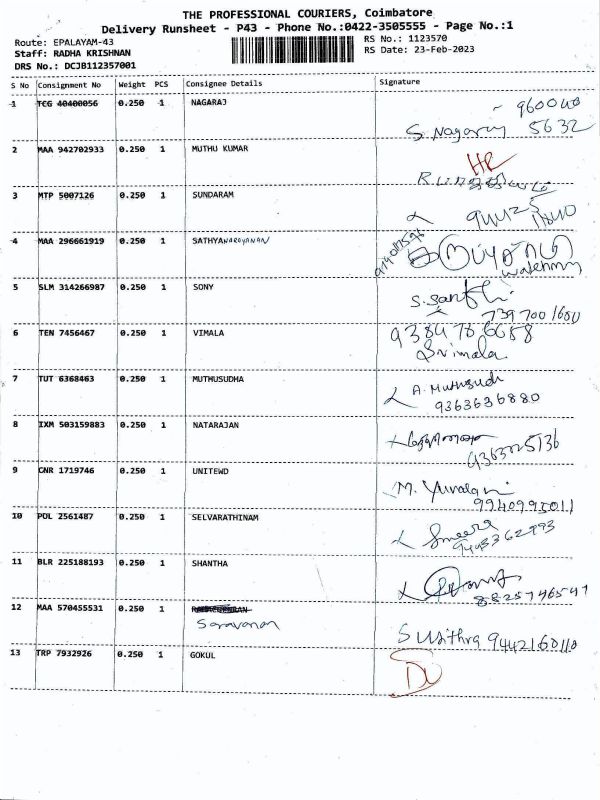 THE PROFESSIONAL COURIERS, Coimbatore
Delivery Runsheet - P43 - Phone No.:0422-3505555 - Page No.:1
Route: EPALAYAM-43
RS No.: 1123570
Staff: RADHA KRISHNAN
RS Date: 23-Feb-2023
DRS No.: DCJB112357001
S No Consignment No Weight PCS Consignee Details Signature
1 TCG 40400056 0.250 1 NAGARAJ
960040
S. Nagaraj 5632
2 MAA 942702933 0.250 1 MUTHU KUMAR
3 MTP 5007126 0.250 1 SUNDARAM
94425
4 MAA 296661919 0.250 1 SATHYANARAYANAN
watchman
5 SLM 314266987 0.250 1 SONY
S. Santhi
739 700 1680
6 TEN 7456467 0.250 1 VIMALA
9384786658
Srimala
7 TUT 6368463 0.250 1 MUTHUSUDHA
A. Muthusudh
9363636880
8 IXM 503159883 0.250 1 NATARAJAN
9 CNR 1719746 0.250 1 UNITEWD
M. Yuvalani
9940995011
10 POL 2561487 0.250 1 SELVARATHINAM
11 BLR 225188193 0.250 1 SHANTHA
8825746547
12 MAA 570455531 0.250 1
Saravanan
Susithra 9442160110
13 TRP 7932926 0.250 1 GOKUL